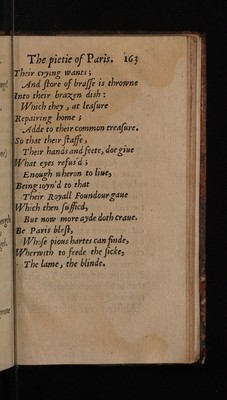 The pietie of Paris. 163
Their crying wants;
And ſtore of braſſe is throwne
Into their brazen dish:
Which they, at leaſure
Repairing home;
Adde to their common treaſure.
So that their ſtaffe,
Their hands and feete, doe giue
What eyes refus'd;
Enough wheron to liue,
Being ioyn'd to that
Their Royall Foundour gaue
Which then ſufficd,
But now more ayde doth craue.
Be Paris bleſt,
Whoſe pious hartes can finde,
Wherwith to feede the ſicke,
The lame, the blinde.